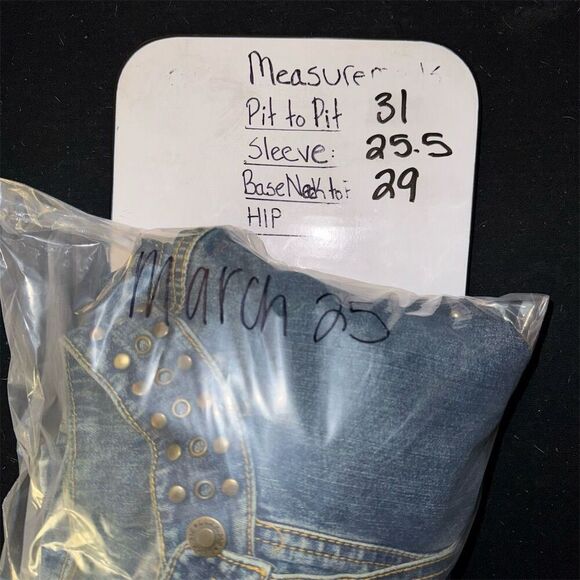 Measurem
Pit to Pit 31
Sleeve: 25.5
Base Neck to: 29
HIP
March 25